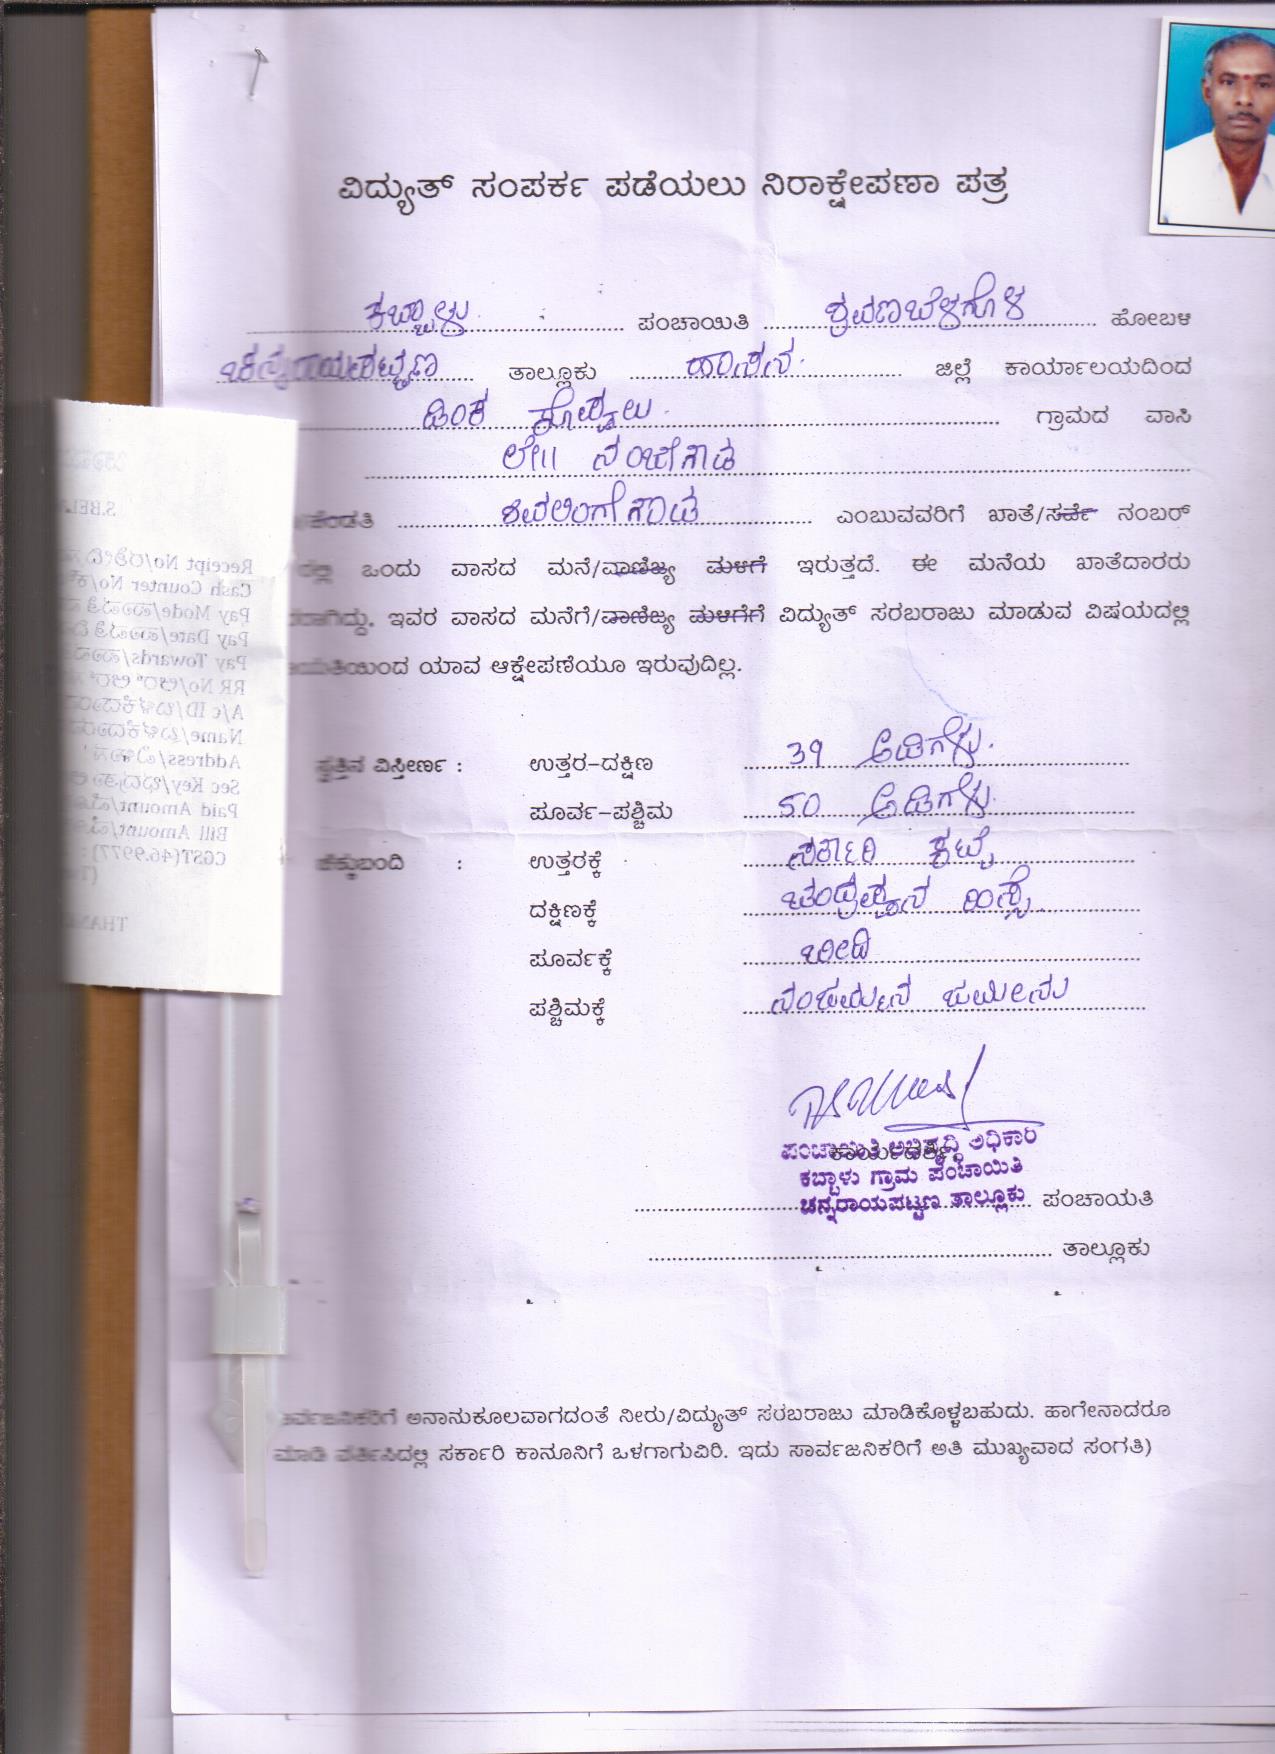 ವಿದ್ಯುತ್ ಸಂಪರ್ಕ ಪಡೆಯಲು ನಿರಾಕ್ಷೇಪಣಾ ಪತ್ರ
ಕಬ್ಬಾಳು ಪಂಚಾಯಿತಿ ಶ್ರವಣಬೆಳಗೊಳ ಹೋಬಳಿ
ಚನ್ನರಾಯಪಟ್ಟಣ ತಾಲ್ಲೂಕು ಹಾಸನ ಜಿಲ್ಲೆ ಕಾರ್ಯಾಲಯದಿಂದ
ಡಿಂಕ ಕೊಪ್ಪಲು ಗ್ರಾಮದ ವಾಸಿ
ಲೇ|| ನಂಜೇಗೌಡ
/ಹೆಂಡತಿ ಶಿವಲಿಂಗೇಗೌಡ ಎಂಬುವವರಿಗೆ ಖಾತೆ/ಸರ್ವೆ ನಂಬರ್
ಒಂದು ವಾಸದ ಮನೆ/ವಾಣಿಜ್ಯ ಮಳಿಗೆ ಇರುತ್ತದೆ. ಈ ಮನೆಯ ಖಾತೆದಾರರು
ಇವರ ವಾಸದ ಮನೆಗೆ/ವಾಣಿಜ್ಯ ಮಳಿಗೆಗೆ ವಿದ್ಯುತ್ ಸರಬರಾಜು ಮಾಡುವ ವಿಷಯದಲ್ಲಿ
ಯಾವ ಆಕ್ಷೇಪಣೆಯೂ ಇರುವುದಿಲ್ಲ.
ಸ್ವತ್ತಿನ ವಿಸ್ತೀರ್ಣ : ಉತ್ತರ-ದಕ್ಷಿಣ 39 ಅಡಿಗಳು.
ಪೂರ್ವ-ಪಶ್ಚಿಮ 50 ಅಡಿಗಳು.
ಚೆಕ್ಕುಬಂದಿ : ಉತ್ತರಕ್ಕೆ ಸರ್ಕಾರಿ ಕಟ್ಟೆ
ದಕ್ಷಿಣಕ್ಕೆ ಚಂದ್ರಪ್ಪನ ಹಿಸ್ಸೆ
ಪೂರ್ವಕ್ಕೆ ಬೀದಿ
ಪಶ್ಚಿಮಕ್ಕೆ ಜಮೀನು
ಪಂಚಾಯಿತಿ ಅಭಿವೃದ್ಧಿ ಅಧಿಕಾರಿ
ಕಾರ್ಯದರ್ಶಿ
ಕಬ್ಬಾಳು ಗ್ರಾಮ ಪಂಚಾಯಿತಿ
ಚನ್ನರಾಯಪಟ್ಟಣ ತಾಲ್ಲೂಕು ಪಂಚಾಯತಿ
ತಾಲ್ಲೂಕು
ಅನಾನುಕೂಲವಾಗದಂತೆ ನೀರು/ವಿದ್ಯುತ್ ಸರಬರಾಜು ಮಾಡಿಕೊಳ್ಳಬಹುದು. ಹಾಗೇನಾದರೂ
ಮಾಡಿ ವರ್ತಿಸಿದಲ್ಲಿ ಸರ್ಕಾರಿ ಕಾನೂನಿಗೆ ಒಳಗಾಗುವಿರಿ. ಇದು ಸಾರ್ವಜನಿಕರಿಗೆ ಅತಿ ಮುಖ್ಯವಾದ ಸಂಗತಿ)
S.BEL
Receipt No/
Cash Counter No/
Pay Mode/
Pay Date/
Pay Towards/
RR No/
A/c ID/
Name/
Address/
Sec Key/
Paid Amount/
Bill Amount/
CGST(46.9977) :
THAN